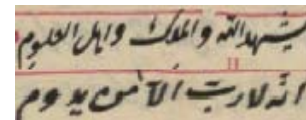 يشهد الله والملوك واهل العلوم
انه لا رب الا من يدوم